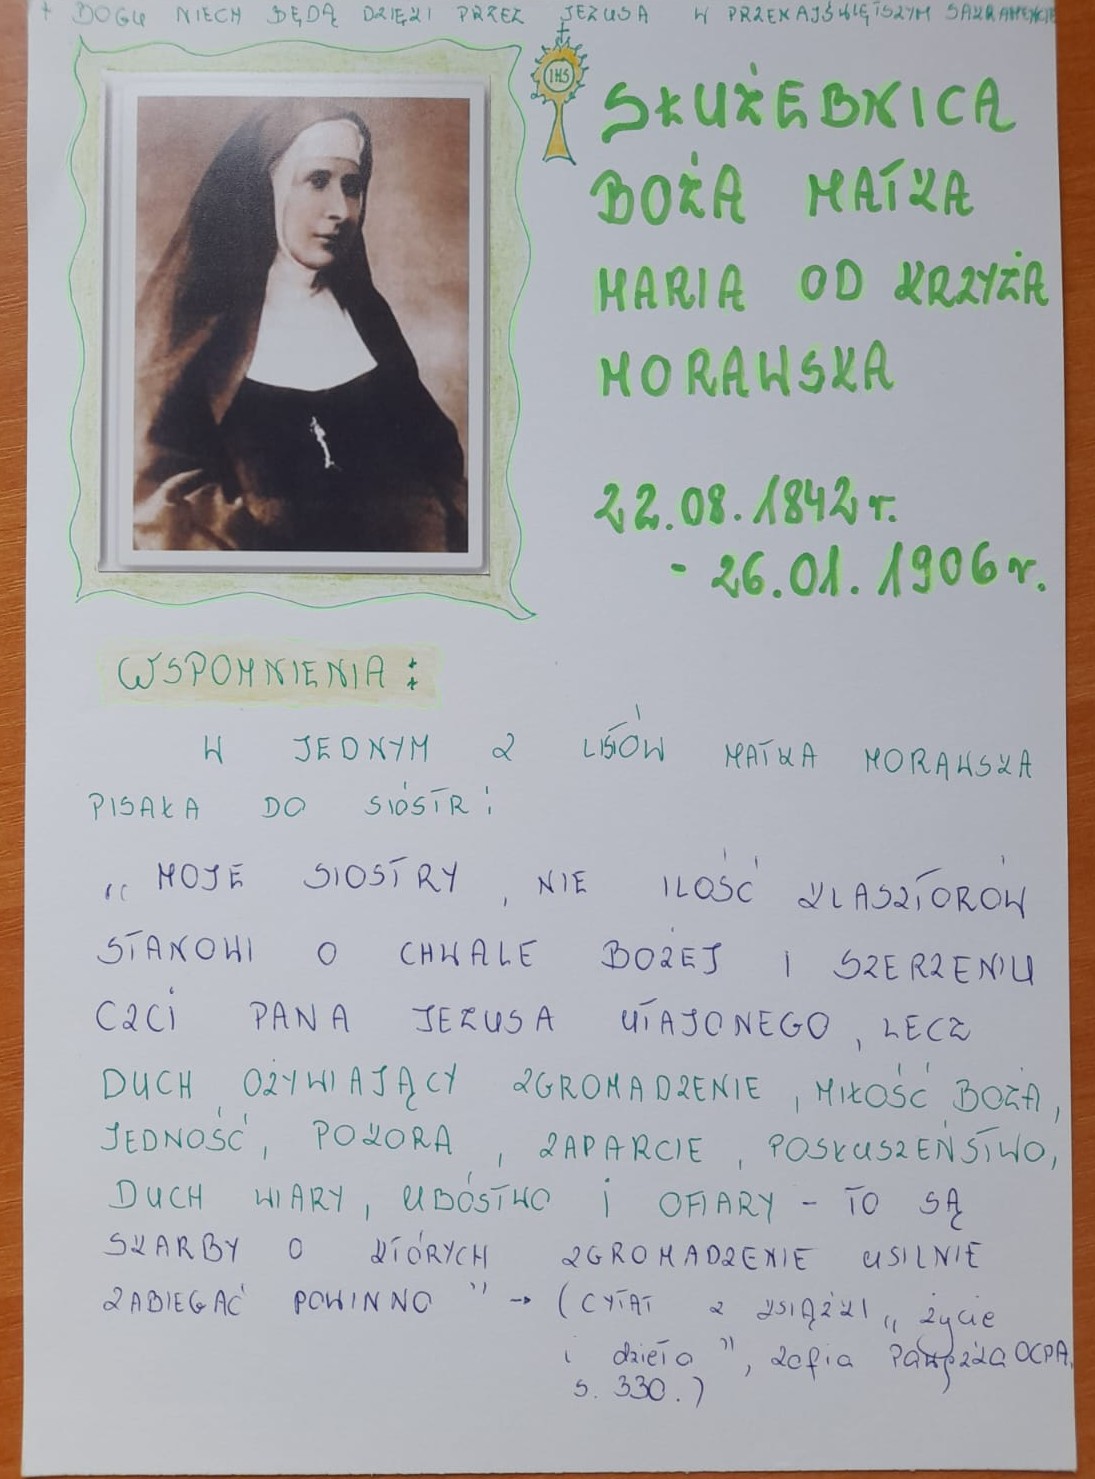 + BOGU NIECH BĘDĄ DZIĘKI PRZEZ JEZUSA W PRZENAJŚWIĘTSZYM SAKRAMENCIE
IHS
SŁUŻEBNICA
BOŻA MATKA
MARIA OD KRZYŻA
MORAWSKA
22.08.1842 r.
- 26.01.1906 r.
WSPOMNIENIA:
W JEDNYM Z LISTÓW MATKA MORAWSKA
PISAŁA DO SIÓSTR:
„MOJE SIOSTRY, NIE ILOŚĆ KLASZTORÓW
STANOWI O CHWALE BOŻEJ I SZERZENIU
CZCI PANA JEZUSA UTAJONEGO, LECZ
DUCH OŻYWIAJĄCY ZGROMADZENIE, MIŁOŚĆ BOŻA,
JEDNOŚĆ, POKORA, ZAPARCIE, POSŁUSZEŃSTWO,
DUCH WIARY, UBÓSTWO I OFIARY - TO SĄ
SKARBY O KTÓRYCH ZGROMADZENIE USILNIE
ZABIEGAĆ POWINNO" → (CYTAT Z KSIĄŻKI „życie
i dzieło", Zofia OCPA,
s. 330.)